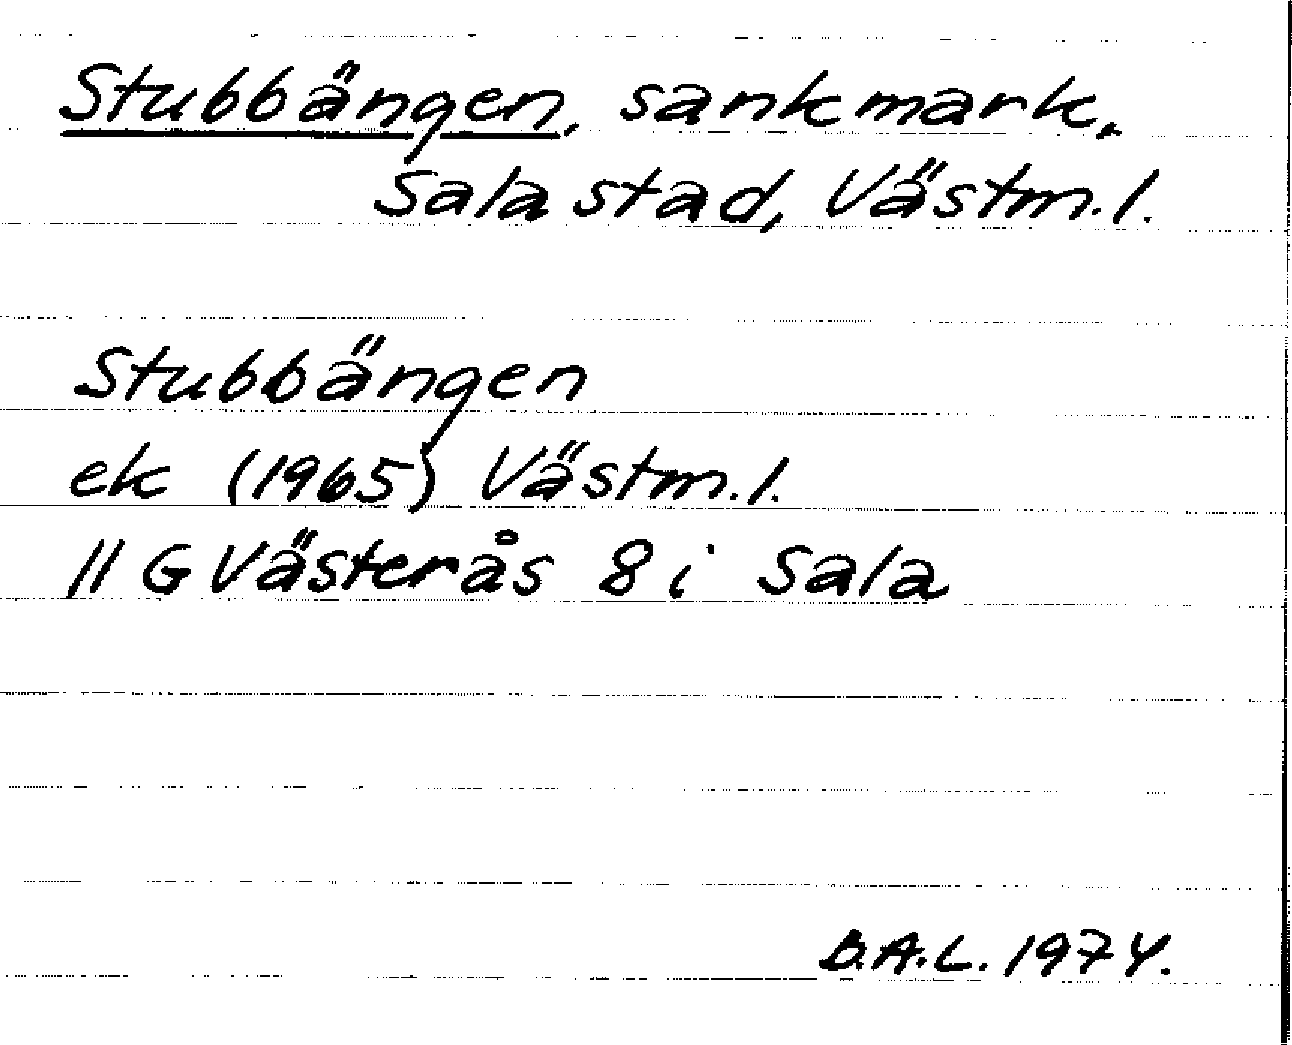 Stubbängen, sankmark,
Sala stad, Västm.l.
Stubbängen
ek (1965) Västm.l.
11 G Västerås 8 i Sala
B.A.L. 1974.